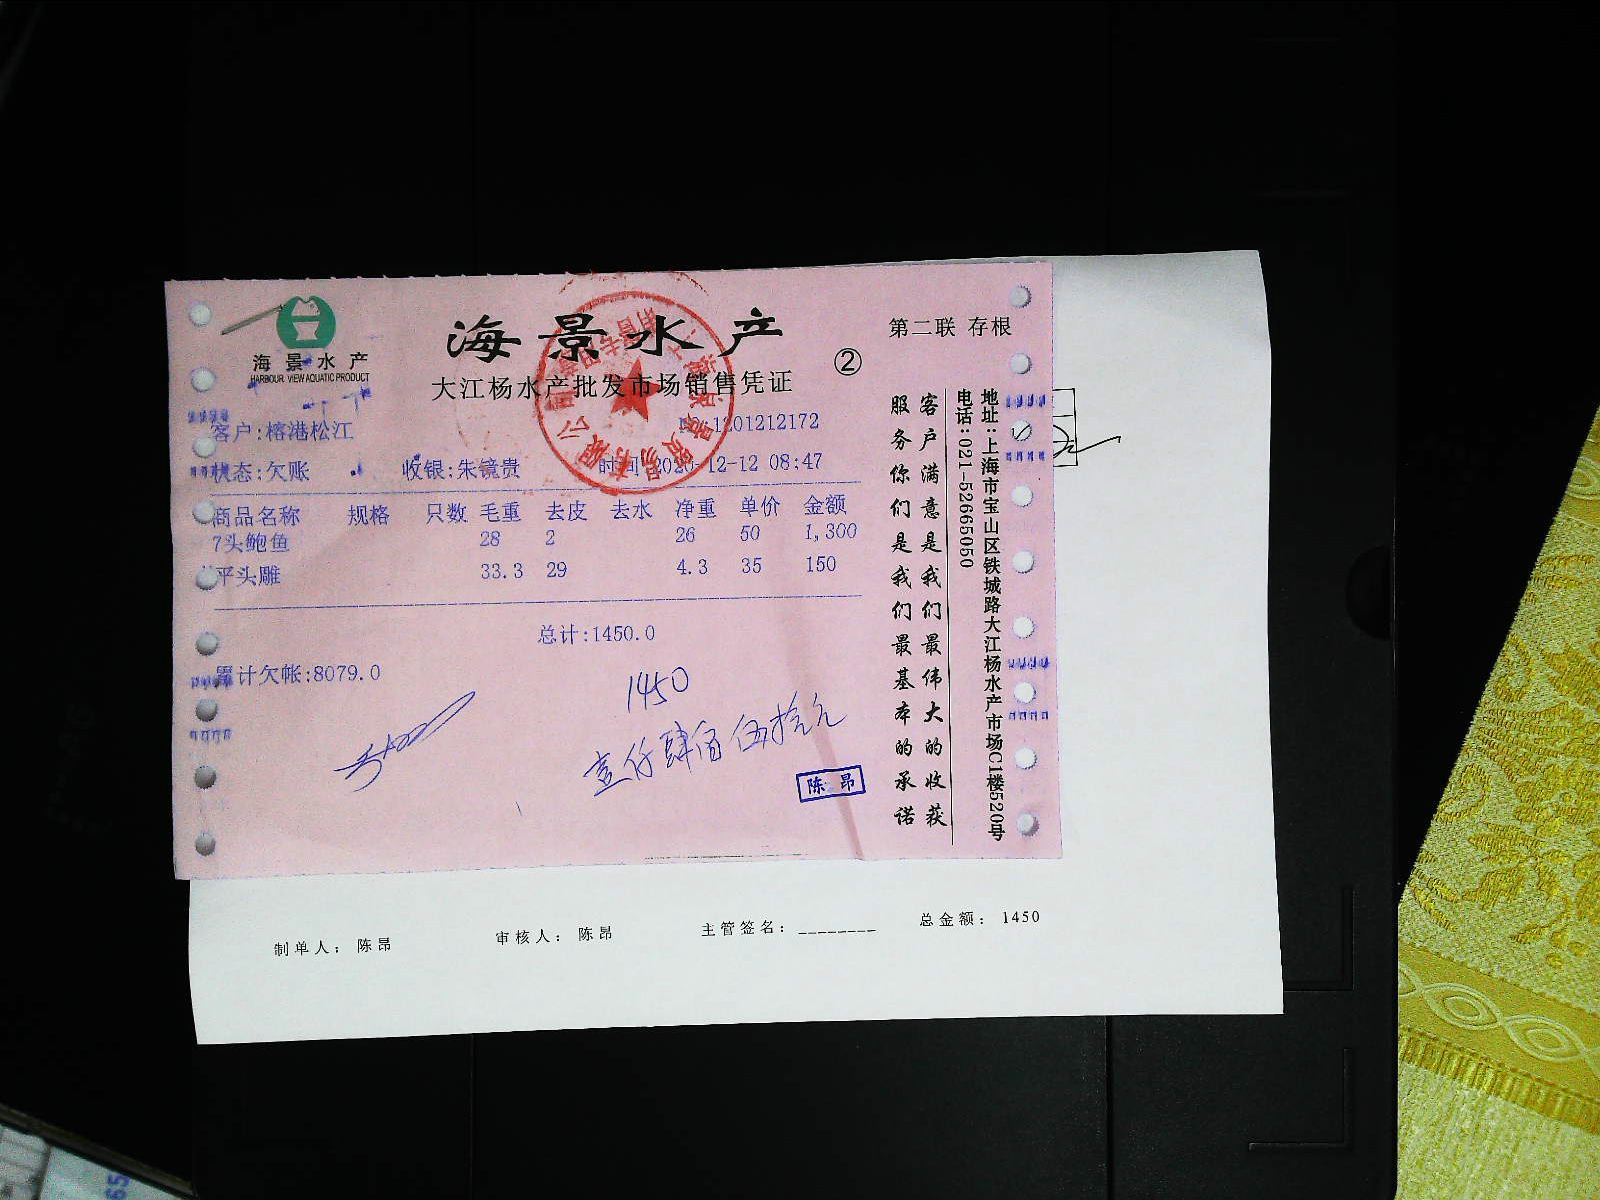 海景水产
HARBOUR VIEW AQUATIC PRODUCT
海景水产
大江杨水产批发市场销售凭证
②
第二联 存根
客户:榕港松江
1201212172
状态:欠账 收银:朱镜贵 时间 2020-12-12 08:47
商品名称 规格 只数 毛重 去皮 去水 净重 单价 金额
7头鲍鱼 28 2 26 50 1,300
平头雕 33.3 29 4.3 35 150
总计:1450.0
累计欠帐:8079.0
1450
壹仟肆佰伍拾元
陈昂
客户满意是我们最伟大的收获
服务你们是我们最基本的承诺
地址:上海市宝山区铁城路大江杨水产市场C1楼520号
电话:021-52665050
制单人: 陈昂 审核人: 陈昂 主管签名: ________ 总金额: 1450